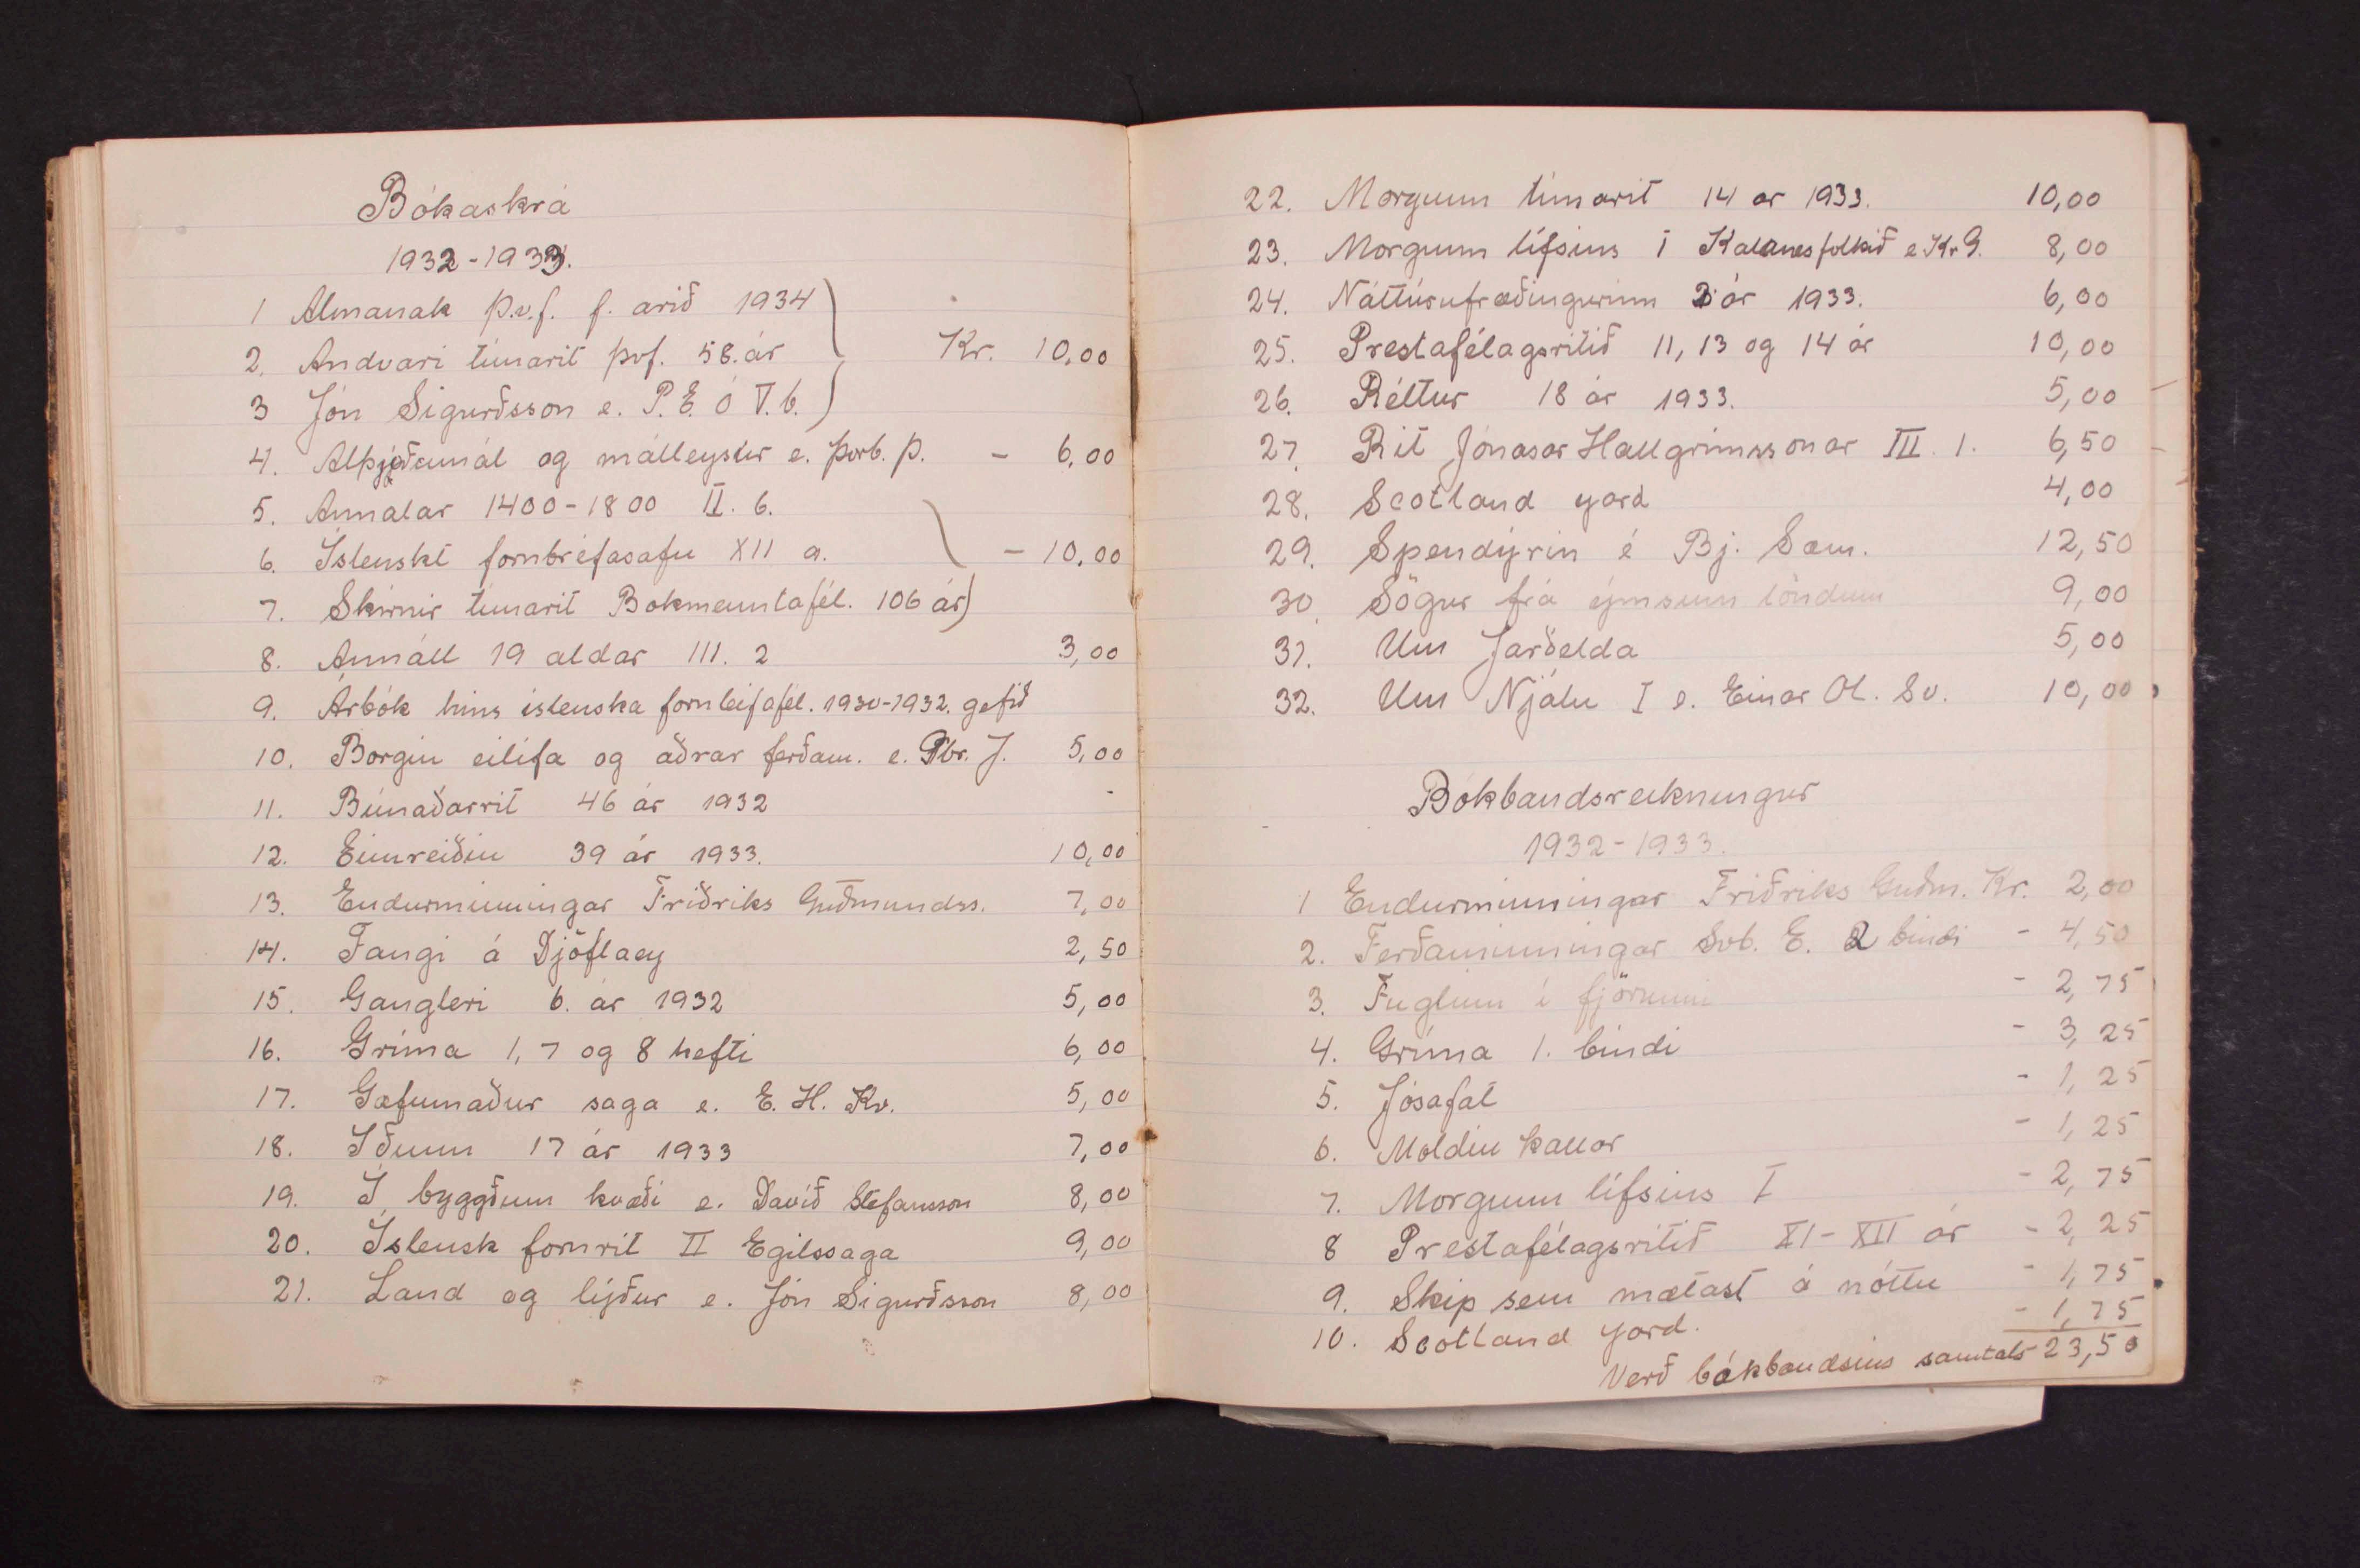 Bókaskrá
1932-1933.
1 Almanak Þ.v.f. f. arið 1934
2. Andvari tímarit þvf. 58. ár Kr. 10,00
3 Jón Sigurðsson e. P. E. Ó V. b.
4. Alþjóðamál og málleysur e. Þorb. Þ. - 6,00
5. Annalar 1400-1800 II. 6.
6. Íslenskt fornbréfasafn XII a. - 10.00
7. Skírnir tímarit Bokmentafél. 106 ár
8. Annáll 19 aldar III. 2 3,00
9. Árbók hins íslenska fornleifafél. 1930-1932. gefið
10. Borgin eilífa og aðrar ferðam. e. Gbr. J. 5,00
11. Búnaðarrit 46 ár 1932 -
12. Eimreiðin 39 ár 1933. 10,00
13. Endurminningar Friðriks Guðmundss. 7,00
14. Fangi á Djöflaey 2,50
15. Gangleri 6. ár 1932 5,00
16. Gríma 1, 7 og 8 hefti 6,00
17. Gæfumaður saga e. E. H. Kv. 5,00
18. Iðunn 17 ár 1933 7,00
19. Í byggðum kvæði e. Davíð Stefansson 8,00
20. Íslensk fornrit II Egilssaga 9,00
21. Land og lýður e. Jón Sigurðsson 8,00
22. Morgunn tímarit 14 ar 1933. 10,00
23. Morgunn lífsins I Kalanesfolkið e Kr G. 8,00
24. Náttúrufræðingurinn 3 ár 1933. 6,00
25. Prestafélagsritið 11, 13 og 14 ár 10,00
26. Réttur 18 ár 1933. 5,00
27. Rit Jónasar Hallgrímssonar III. 1. 6,50
28. Scotland yard 4,00
29. Spendýrin é Bj. Sæm. 12,50
30. Sögur frá ýmsum löndum 9,00
31. Um Jarðelda 5,00
32. Um Njálu I e. Einar Ól. Sv. 10,00
Bókbandsreikningur
1932-1933.
1 Endurminningar Friðriks Guðm. Kr. 2,00
2. Ferðaminningar Svb. E. 2 bindi - 4,50
3. Fuglinn í fjörunni - 2,75
4. Gríma 1. bindi - 3,25
5. Jósafat - 1,25
6. Moldin kallar - 1,25
7. Morgunn lífsins I - 2,75
8 Prestafélagsritið XI-XII ár - 2,25
9. Skip sem mætast á nóttu - 1,75
10. Scotland yard. - 1,75
Verð bókbandsins samtals 23,50